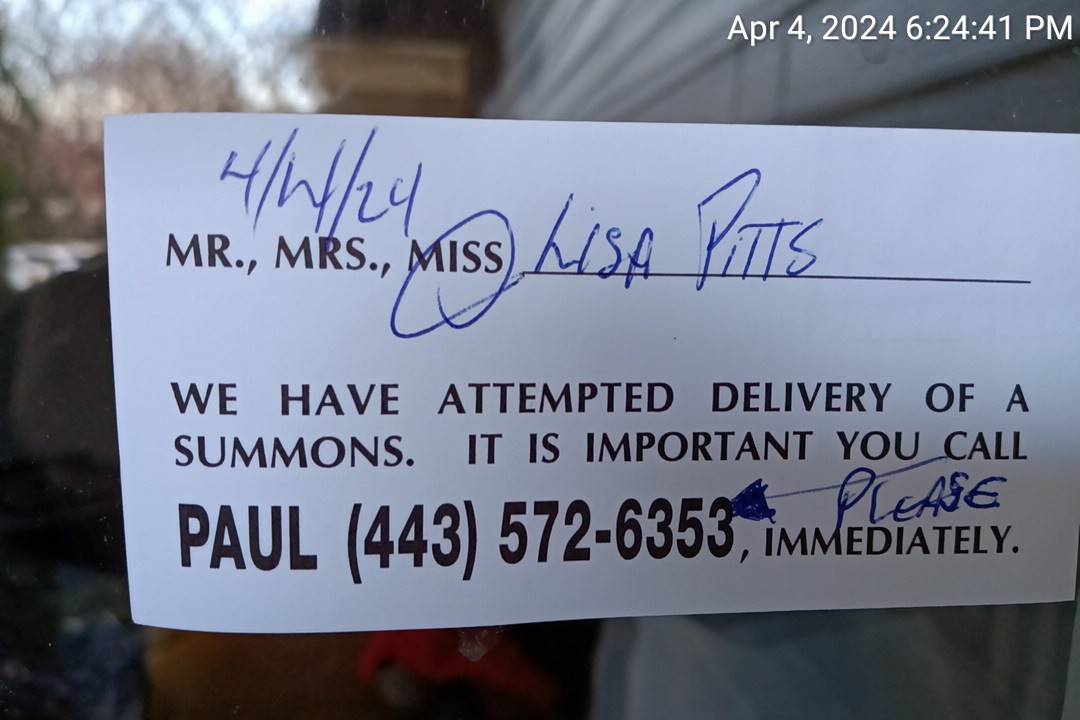 Apr 4, 2024 6:24:41 PM
4/4/24
MR., MRS., MISS LISA PITTS
WE HAVE ATTEMPTED DELIVERY OF A
SUMMONS. IT IS IMPORTANT YOU CALL
PLEASE
PAUL (443) 572-6353, IMMEDIATELY.